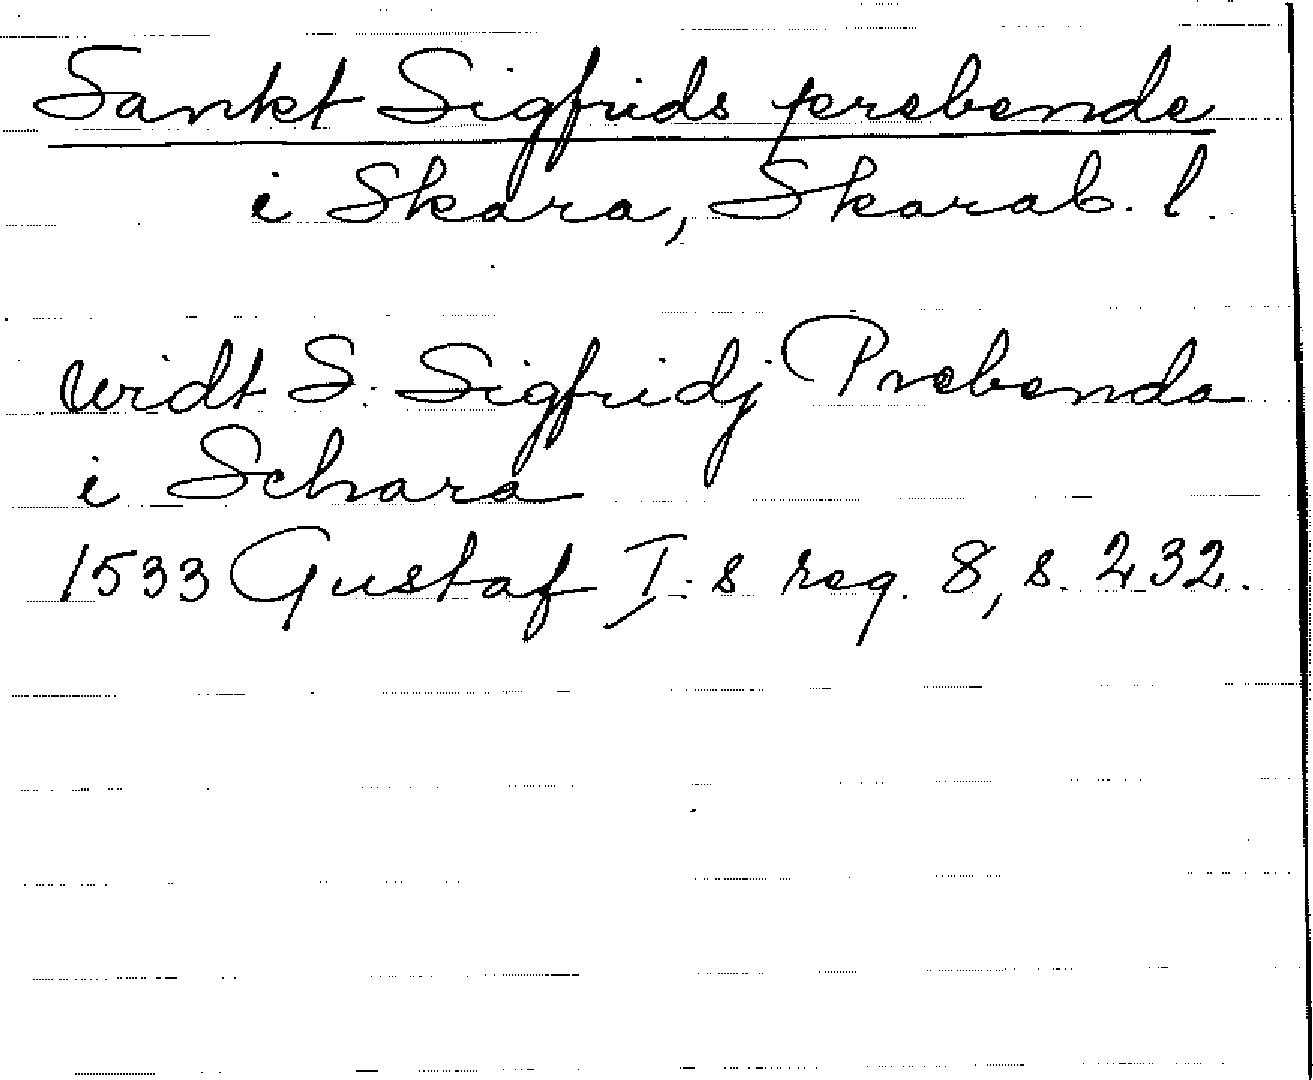 Sankt Sigfrids prebende
i Skara, Skarab. l.
widt S. Sigfridj Prebenda
i Schara
1533 Gustaf I:s reg. 8, s. 232.